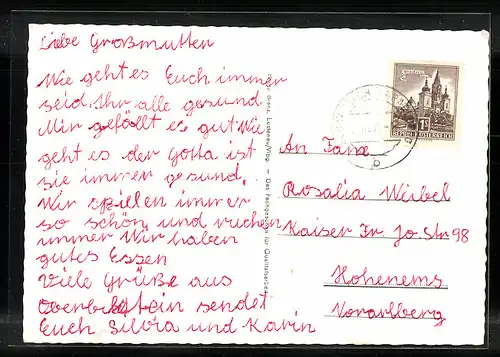 Liebe Großmutter
Wie geht es Euch immer
seid Ihr alle gesund
Mir gefällt es gut Wie
geht es der Gotta ist
sie immer gesund.
Wir spillen immer
so schön und ruchen
immer Wir haben
gutes Essen
Viele Grüße aus
sendet
Euch Silvia und Karin
An Fam
Rosalia Weibel
Kaiser Fr Jo Str 98
Hohenems
Vorarlberg
REPUBLIK ÖSTERREICH
Lustenau/Vlbg. – Das Fachgeschäft für Qualitätsarbeit